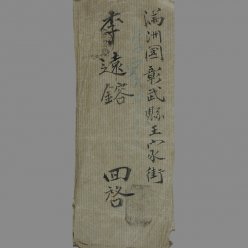 滿洲國彰武縣王家街
李遠鎔 回啓